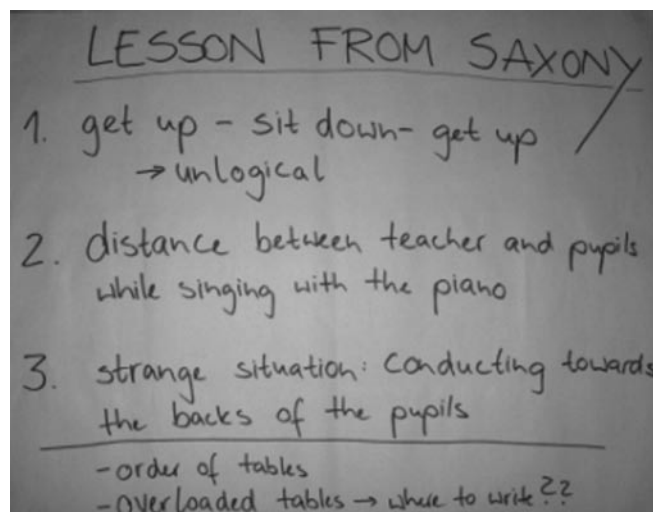 LESSON FROM SAXONY
1. get up - sit down- get up
→ unlogical
2. distance between teacher and pupils
while singing with the piano
3. strange situation: conducting towards
the backs of the pupils
- order of tables
- overloaded tables → where to write??